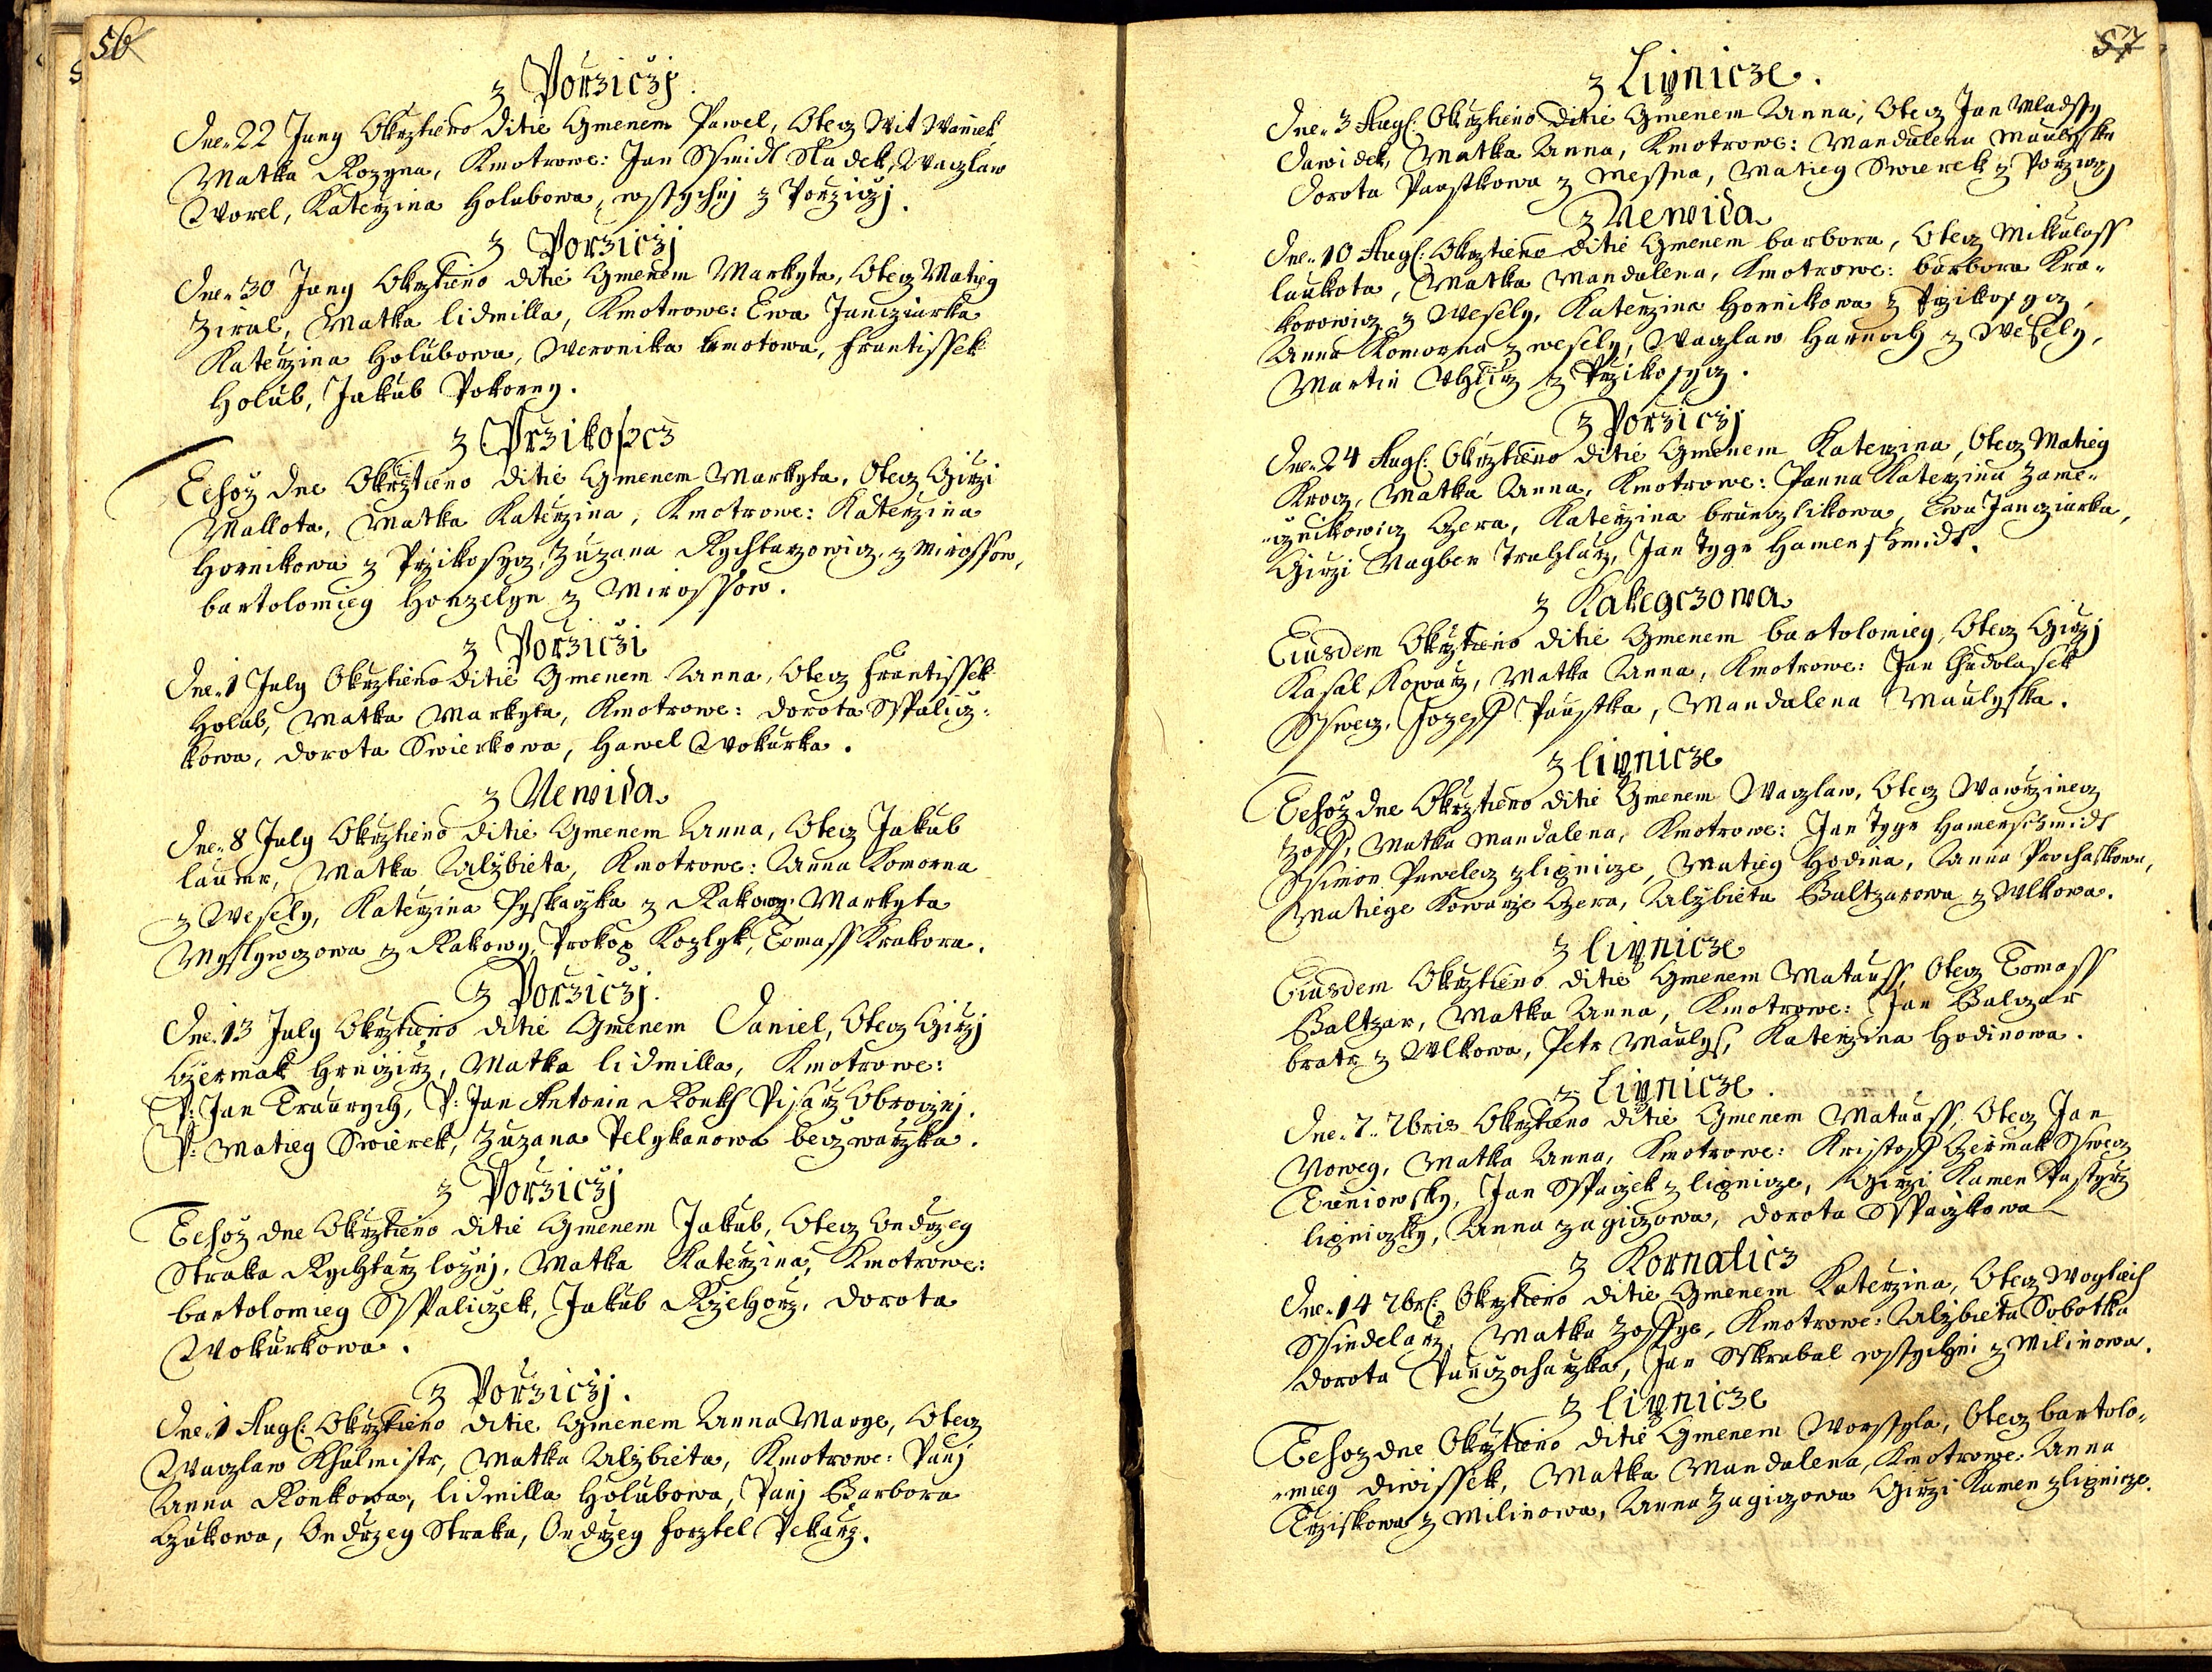 56
z Porziczj.
Dne 22 Juny Okrztieno Ditie Gmenem Pawel, Otecz Wit Waniek
Matka Rozyna, Kmotrowe: Jan Ssmidt Sladek, Waczlaw
Worel, Katerzina Holubowa, wssychnj z Porziczj.
z Porziczj
Dne 30 Juny Okrztieno ditie Gmenem Markyta, Otecz Matieg
Ziral, Matka lidmilla, Kmotrowe: Ewa Janczarka
Katerzina Holubowa, Weronika kmotowa, frantissek
Holub, Jakub Pokorny.
z Przikosycz
Tehoz dne Okrztieno ditie Gmenem Markyta, Otecz Girzi
Mallota, Matka Katerzina, Kmotrowe: Katerzina
Hornikowa z Przikosycz, Zuzana Rychtarzowicz z Mirossow,
bartolomieg Honzelyn z Mirossow.
z Porziczi
Dne 1 July Okrztieno ditie Gmenem Anna, Otecz frantissek
Holub, Matka Markyta, Kmotrowe: dorota Sspalicz-
kowa, dorota Swierkowa, Hawel Wokurka.
z Newida
Dne 8 July Okrztieno ditie Gmenem Anna, Otecz Jakub
laumr, Matka Alzbieta, Kmotrowe: Anna Komorna
z Wesely, Katerzina Pyskaczka z Rakowy Markyta
Myslywczowa z Rakowy, Prokop Kozlyk, Tomass Krakora.
z Porziczj.
Dne 13 July Okrztieno ditie Gmenem Daniel, Otecz Girzj
Czermak Hrnczirz, Matka lidmilla, Kmotrowe:
P: Jan Traurych, P: Jan Antonin Ronkh Pisarz Obrocznj.
P: Matieg Swierek, Zuzana Pelykanowa beczwarzka.
z Porziczj
Tehoz dne Okrztieno ditie Gmenem Jakub, Otecz Ondrzeg
Straka Rychtarz loznj, Matka Katerzina, Kmotrowe:
bartolomieg Sspaliczek, Jakub Rzehorz, dorota
Wokurkowa.
z Porziczj.
Dne 1 Augs: Okrztieno ditie Gmenem Anna Marye, Otecz
Waczlaw Khalmistr, Matka Alzbieta, Kmotrowe: Panj
Anna Ronkowa, lidmilla Holubowa, Panj Barbora
Czukowa, Ondrzeg Straka, Ondrzeg forztel Pekarz.
57
z Lipnicze.
Dne 3 Augs: Okrztieno ditie Gmenem Anna, Otecz Jan Mladssy
Dawidek, Matka Anna, Kmotrowe: Mandalena Maulyska
Dorota Paustkowa z Messna, Matieg Swierek z Porziczj
z Newida
Dne 10 Augs: Okrztieno ditie Gmenem barbora, Otecz Mikulass
laukota, Matka Mandalena, Kmotrowe: barbora Kra-
korowicz z Wesely, Katerzina Hornikowa z Przikosycz,
Anna Komorna z wesely, Waczlaw Hanoch z Wesely,
Martin Uhlirz z Przikosycz.
z Porziczj
Dne 24 Augs: Okrztieno ditie Gmenem Katerzina, Otecz Matieg
Krocz, Matka Anna, Kmotrowe: Panna Katerzina Zame-
cznikowicz Czera, Katerzina brunczlikowa, Ewa Janczarka,
Girzi Wagber Truhlarz, Jan Tygr Hamerschmidt.
z Kakegczowa
Eiusdem Okrztieno ditie Gmenem bartolomieg, Otecz Girzj
Kasal Kowarz, Matka Anna, Kmotrowe: Jan Chudolasek
Sswecz, Jozeff Paustka, Mandalena Maulyska.
z lipnicze
Tehoz dne Okrztieno ditie Gmenem Waczlaw, Otecz Wawrzinecz
Zoss, Matka Mandalena, Kmotrowe: Jan Tygr Hamerschmidt
Ssimon Pawelecz z lipnicze, Matieg Hodina, Anna Prochaskowa,
Matiege Kowarze Czera, Alzbieta Baltzarowa z Wlkowa.
z lipnicze
Eiusdem Okrztieno ditie Gmenem Matauss, Otecz Tomass
Baltzar, Matka Anna, Kmotrowe: Jan Balczar
bratr z Wlkowa, Petr Maulys, Katerzina Hodinowa.
z Lipnicze.
Dne 7. 7bris Okrztieno ditie Gmenem Matauss, Otecz Jan
Noweg, Matka Anna, Kmotrowe: Kristoff Czermak Sswecz
Tieniowsky, Jan Sspaczek z lipnicze, Girzi Kamen Pastyrz
lipniczky, Anna Zagiczowa, dorota Sspaczkowa
z Kornaticz
Dne 14 7brs: Okrztieno ditie Gmenem Katerzina, Otecz Wogtiech
Ssindelarz, Matka Zoffye, Kmotrowe: Alzbieta Sobotka
dorota Punczocharzka, Jan Sskrabal wssychni z Milinowa.
z lipnicze
Tehoz dne Okrztieno ditie Gmenem Worssyla, Otecz bartolo-
mieg diwissek, Matka Mandalena, Kmotrowe: Anna
Trziskowa z Milinowa, Anna Zagiczowa Girzi Kamen z lipnicze.